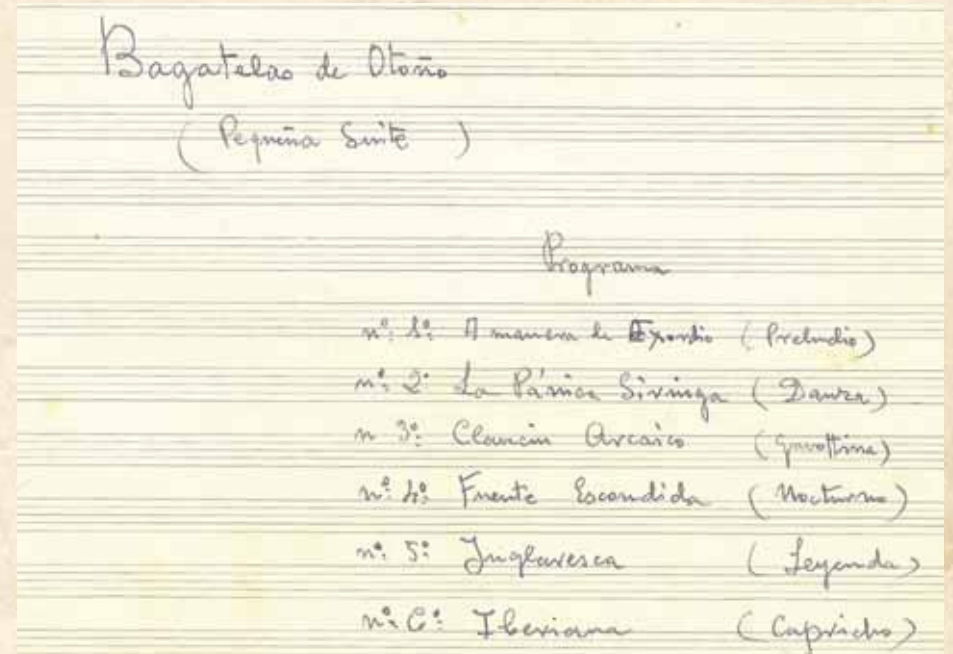 Bagatelas de Otoño
(Pequeña Suite)
Programa
nº: 1º: A manera de Exordio (Preludio)
nº: 2º La Pánica Siringa (Danza)
n 3º: Clavecin Arcaico (Gavottina)
nº: 4º: Fuente Escondida (Nocturno)
nº: 5º: Juglaresca (Leyenda)
nº: 6º: Iberiana (Capricho)